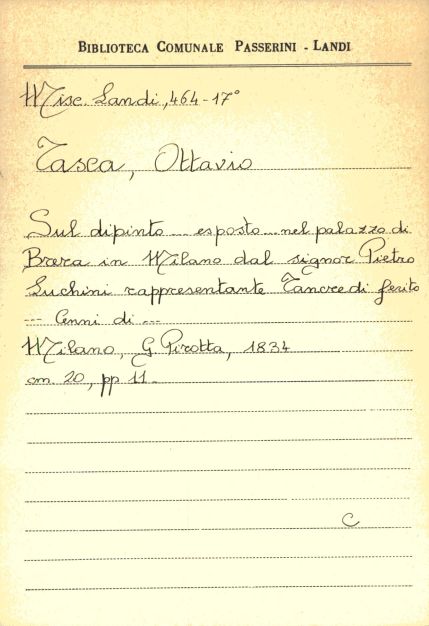 BIBLIOTECA COMUNALE PASSERINI - LANDI
Misc. Landi, 464-17°
Tasca, Ottavio
Sul dipinto ... esposto ... nel palazzo di
Brera in Milano dal signor Pietro
Luchini rappresentante Tancredi ferito
--- Cenni di ---
Milano, G. Pirotta, 1834
cm. 20, pp 11.
C